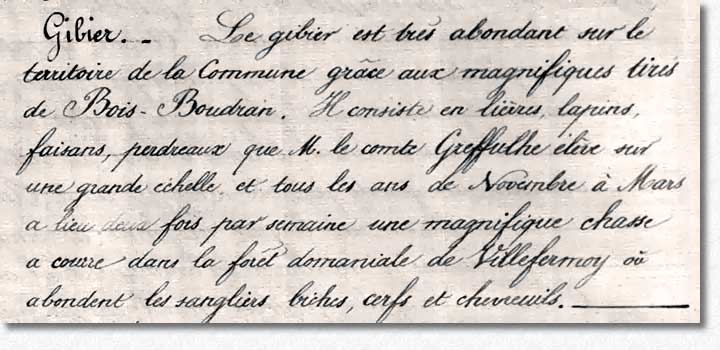 Gibier. - Le gibier est très abondant sur le
territoire de la Commune grâce aux magnifiques tirés
de Bois-Boudran. Il consiste en lièvres, lapins,
faisans, perdreaux que M. le comte Greffulhe élève sur
une grande échelle, et tous les ans de Novembre à Mars
a lieu deux fois par semaine une magnifique chasse
a courre dans la forêt domaniale de Villefermoy où
abondent les sangliers biches, cerfs et chevreuils.